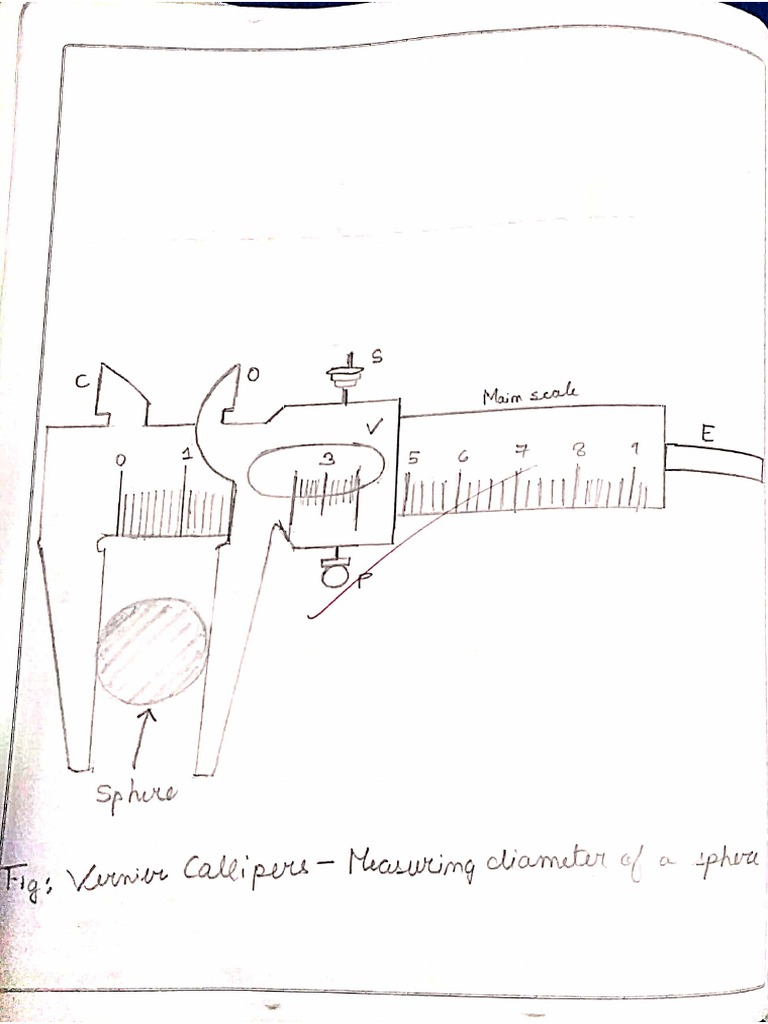 S
C
O
Main scale
V
E
0 1 3 5 6 7 8 9
P
Sphere
Fig: Vernier Callipers - Measuring diameter of a sphere